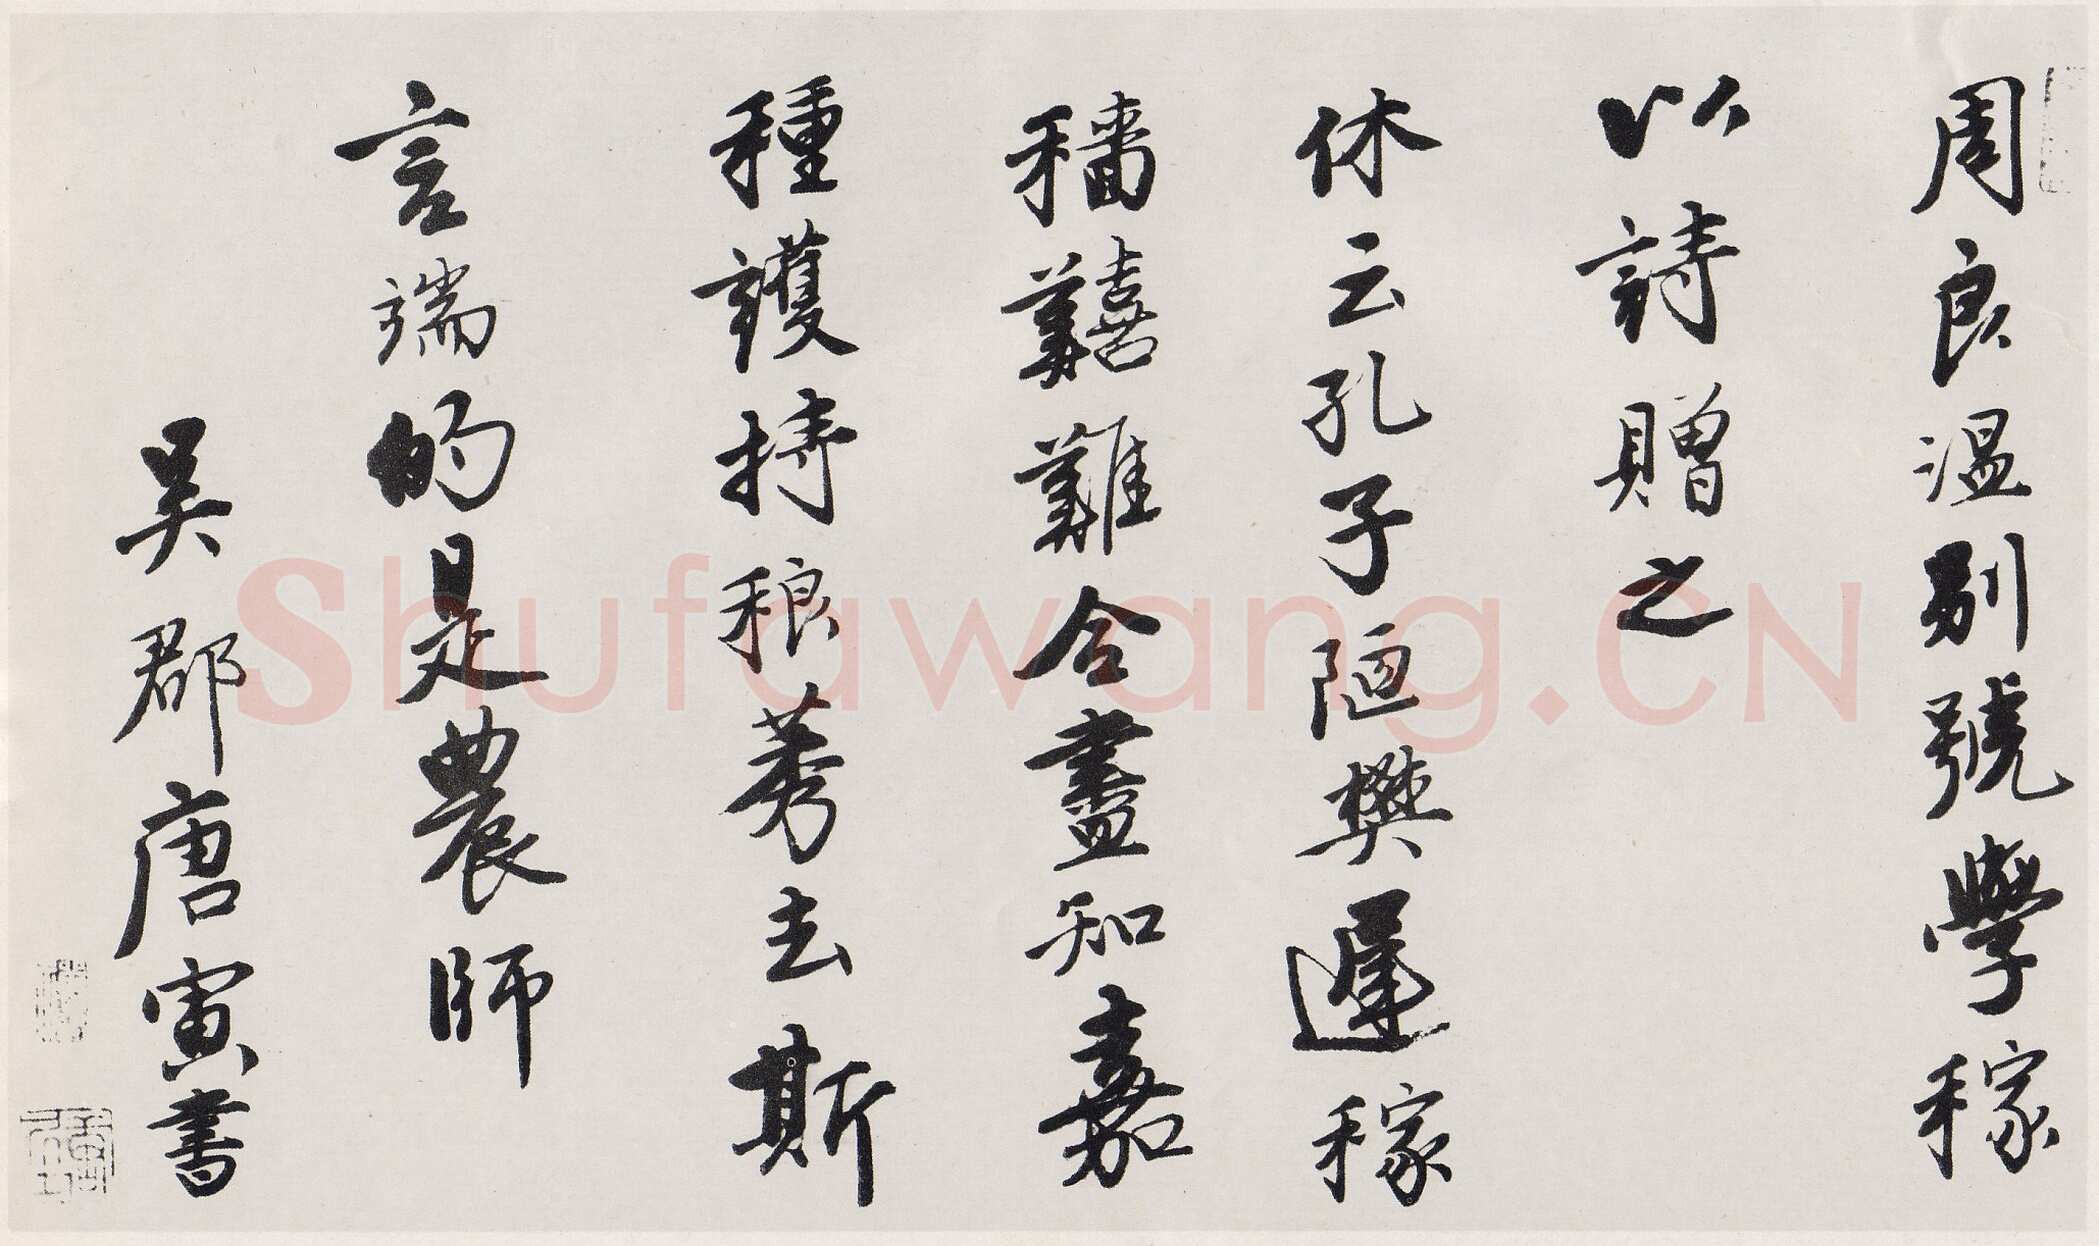 周良溫別號學稼
以詩贈之
休云孔子陋樊遲稼
穡囏難令盡知嘉
種護持稂莠去斯
言端的是農師
吳郡唐寅書
Shufawang.CN